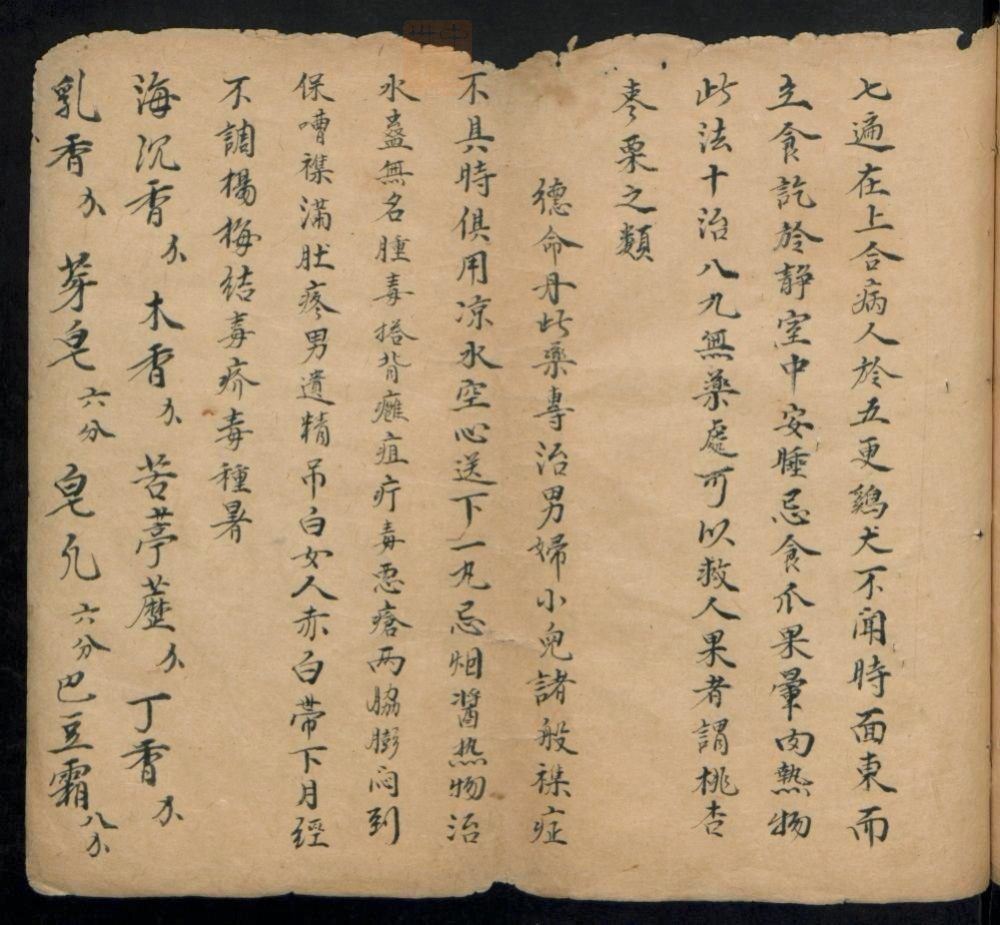 七遍在上合病人於五更鷄犬不聞時面東而
立食訖於静室中安睡忌食爪果暈肉熱物
此法十治八九無藥處可以救人果者謂桃杏
枣栗之類
德命丹此藥專治男婦小兒諸般襍症
不具時俱用凉水空心送下一丸忌烟醬热物治
水蠱無名腫毒搭背癰疽疔毒悪瘡两脇膨闷到
保嘈襍滿肚疼男遺精吊白女人赤白帶下月經
不調楊梅结毒疥毒種暑
海沉香 木香 苦葶藶 丁香
乳香 芽皂六分 皂凢六分巴豆霜八